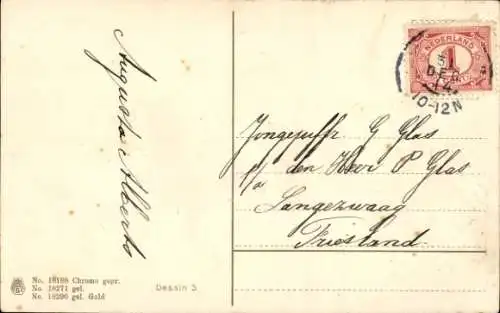 Augusta Alberts
NEDERLAND
1
31
DEC
14
10-12N
Jongejuffr G Glas
p/a den Heer P Glas
Langezwaag
Friesland
No. 18188 Chromo gepr.
No. 18271 gel.
No. 18290 gel. Gold
Dessin 3